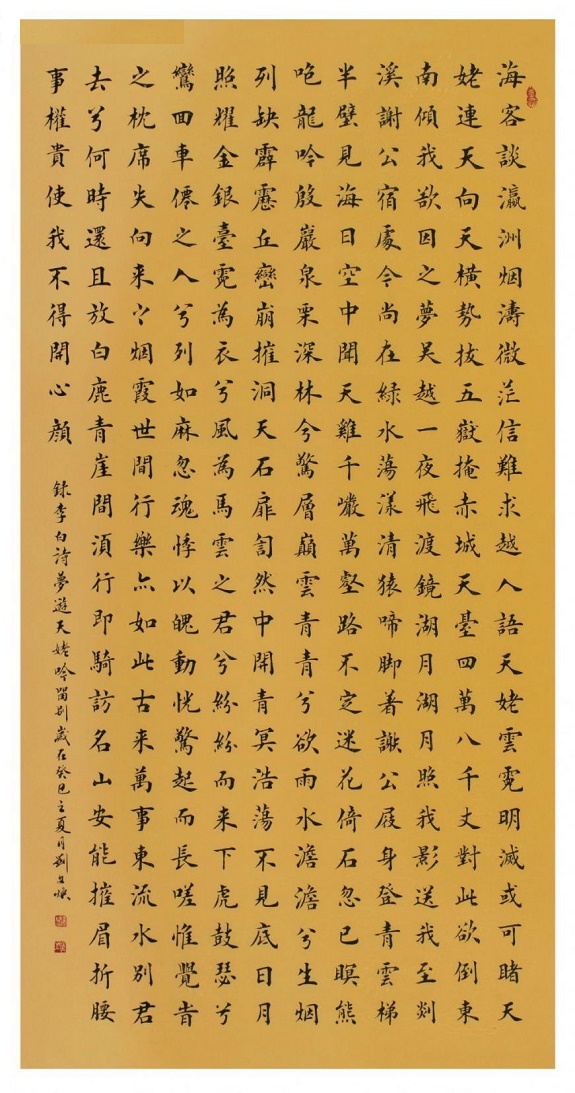 海客談瀛洲烟濤微茫信難求越人語天姥雲霓明滅或可睹天
姥連天向天橫勢拔五嶽掩赤城天臺四萬八千丈對此欲倒東
南傾我欲因之夢吴越一夜飛渡鏡湖月湖月照我影送我至剡
溪謝公宿處今尚在緑水蕩漾清猿啼脚著謝公屐身登青雲梯
半壁見海日空中聞天雞千巖萬壑路不定迷花倚石忽已暝熊
咆龍吟殷巖泉栗深林兮驚層巔雲青青兮欲雨水澹澹兮生烟
列缺霹靂丘巒崩摧洞天石扉訇然中開青冥浩蕩不見底日月
照耀金銀臺霓為衣兮風為馬雲之君兮紛紛而来下虎鼓瑟兮
鸞回車僊之人兮列如麻忽魂悸以魄動恍驚起而長嗟惟覺旹
之枕席失向来之烟霞世間行樂亦如此古来萬事東流水別君
去兮何時還且放白鹿青崖間須行即騎訪名山安能摧眉折腰
事權貴使我不得開心顔
錄李白詩夢遊天姥吟留别歲在癸巳之夏月劉